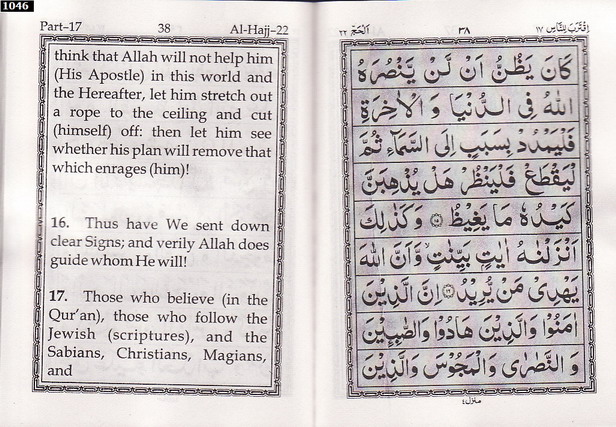 1046
Part–17 38 Al-Hajj–22
think that Allah will not help him
(His Apostle) in this world and
the Hereafter, let him stretch out
a rope to the ceiling and cut
(himself) off: then let him see
whether his plan will remove that
which enrages (him)!
16. Thus have We sent down
clear Signs; and verily Allah does
guide whom He will!
17. Those who believe (in the
Qur'an), those who follow the
Jewish (scriptures), and the
Sabians, Christians, Magians,
and
اِقْتَرَبَ لِلنَّاسِ ١٧ ٣٨ اَلْحَجّ ٢٢
كَانَ يَظُنُّ اَنْ لَّنْ يَّنْصُرَهُ
اللّٰهُ فِى الدُّنْيَا وَ الْاٰخِرَةِ
فَلْيَمْدُدْ بِسَبَبٍ اِلَى السَّمَآءِ ثُمَّ
لْيَقْطَعْ فَلْيَنْظُرْ هَلْ يُذْهِبَنَّ
كَيْدُهٗ مَا يَغِيْظُ ﴿١٥﴾ وَكَذٰلِكَ
اَنْزَلْنٰهُ اٰيٰتٍۭ بَيِّنٰتٍ ۙ وَّاَنَّ اللّٰهَ
يَهْدِىْ مَنْ يُّرِيْدُ ﴿١٦﴾ اِنَّ الَّذِيْنَ
اٰمَنُوْا وَالَّذِيْنَ هَادُوْا وَالصّٰبِـِٕيْنَ
وَ النَّصٰرٰى وَالْمَجُوْسَ وَالَّذِيْنَ
منزل ٤